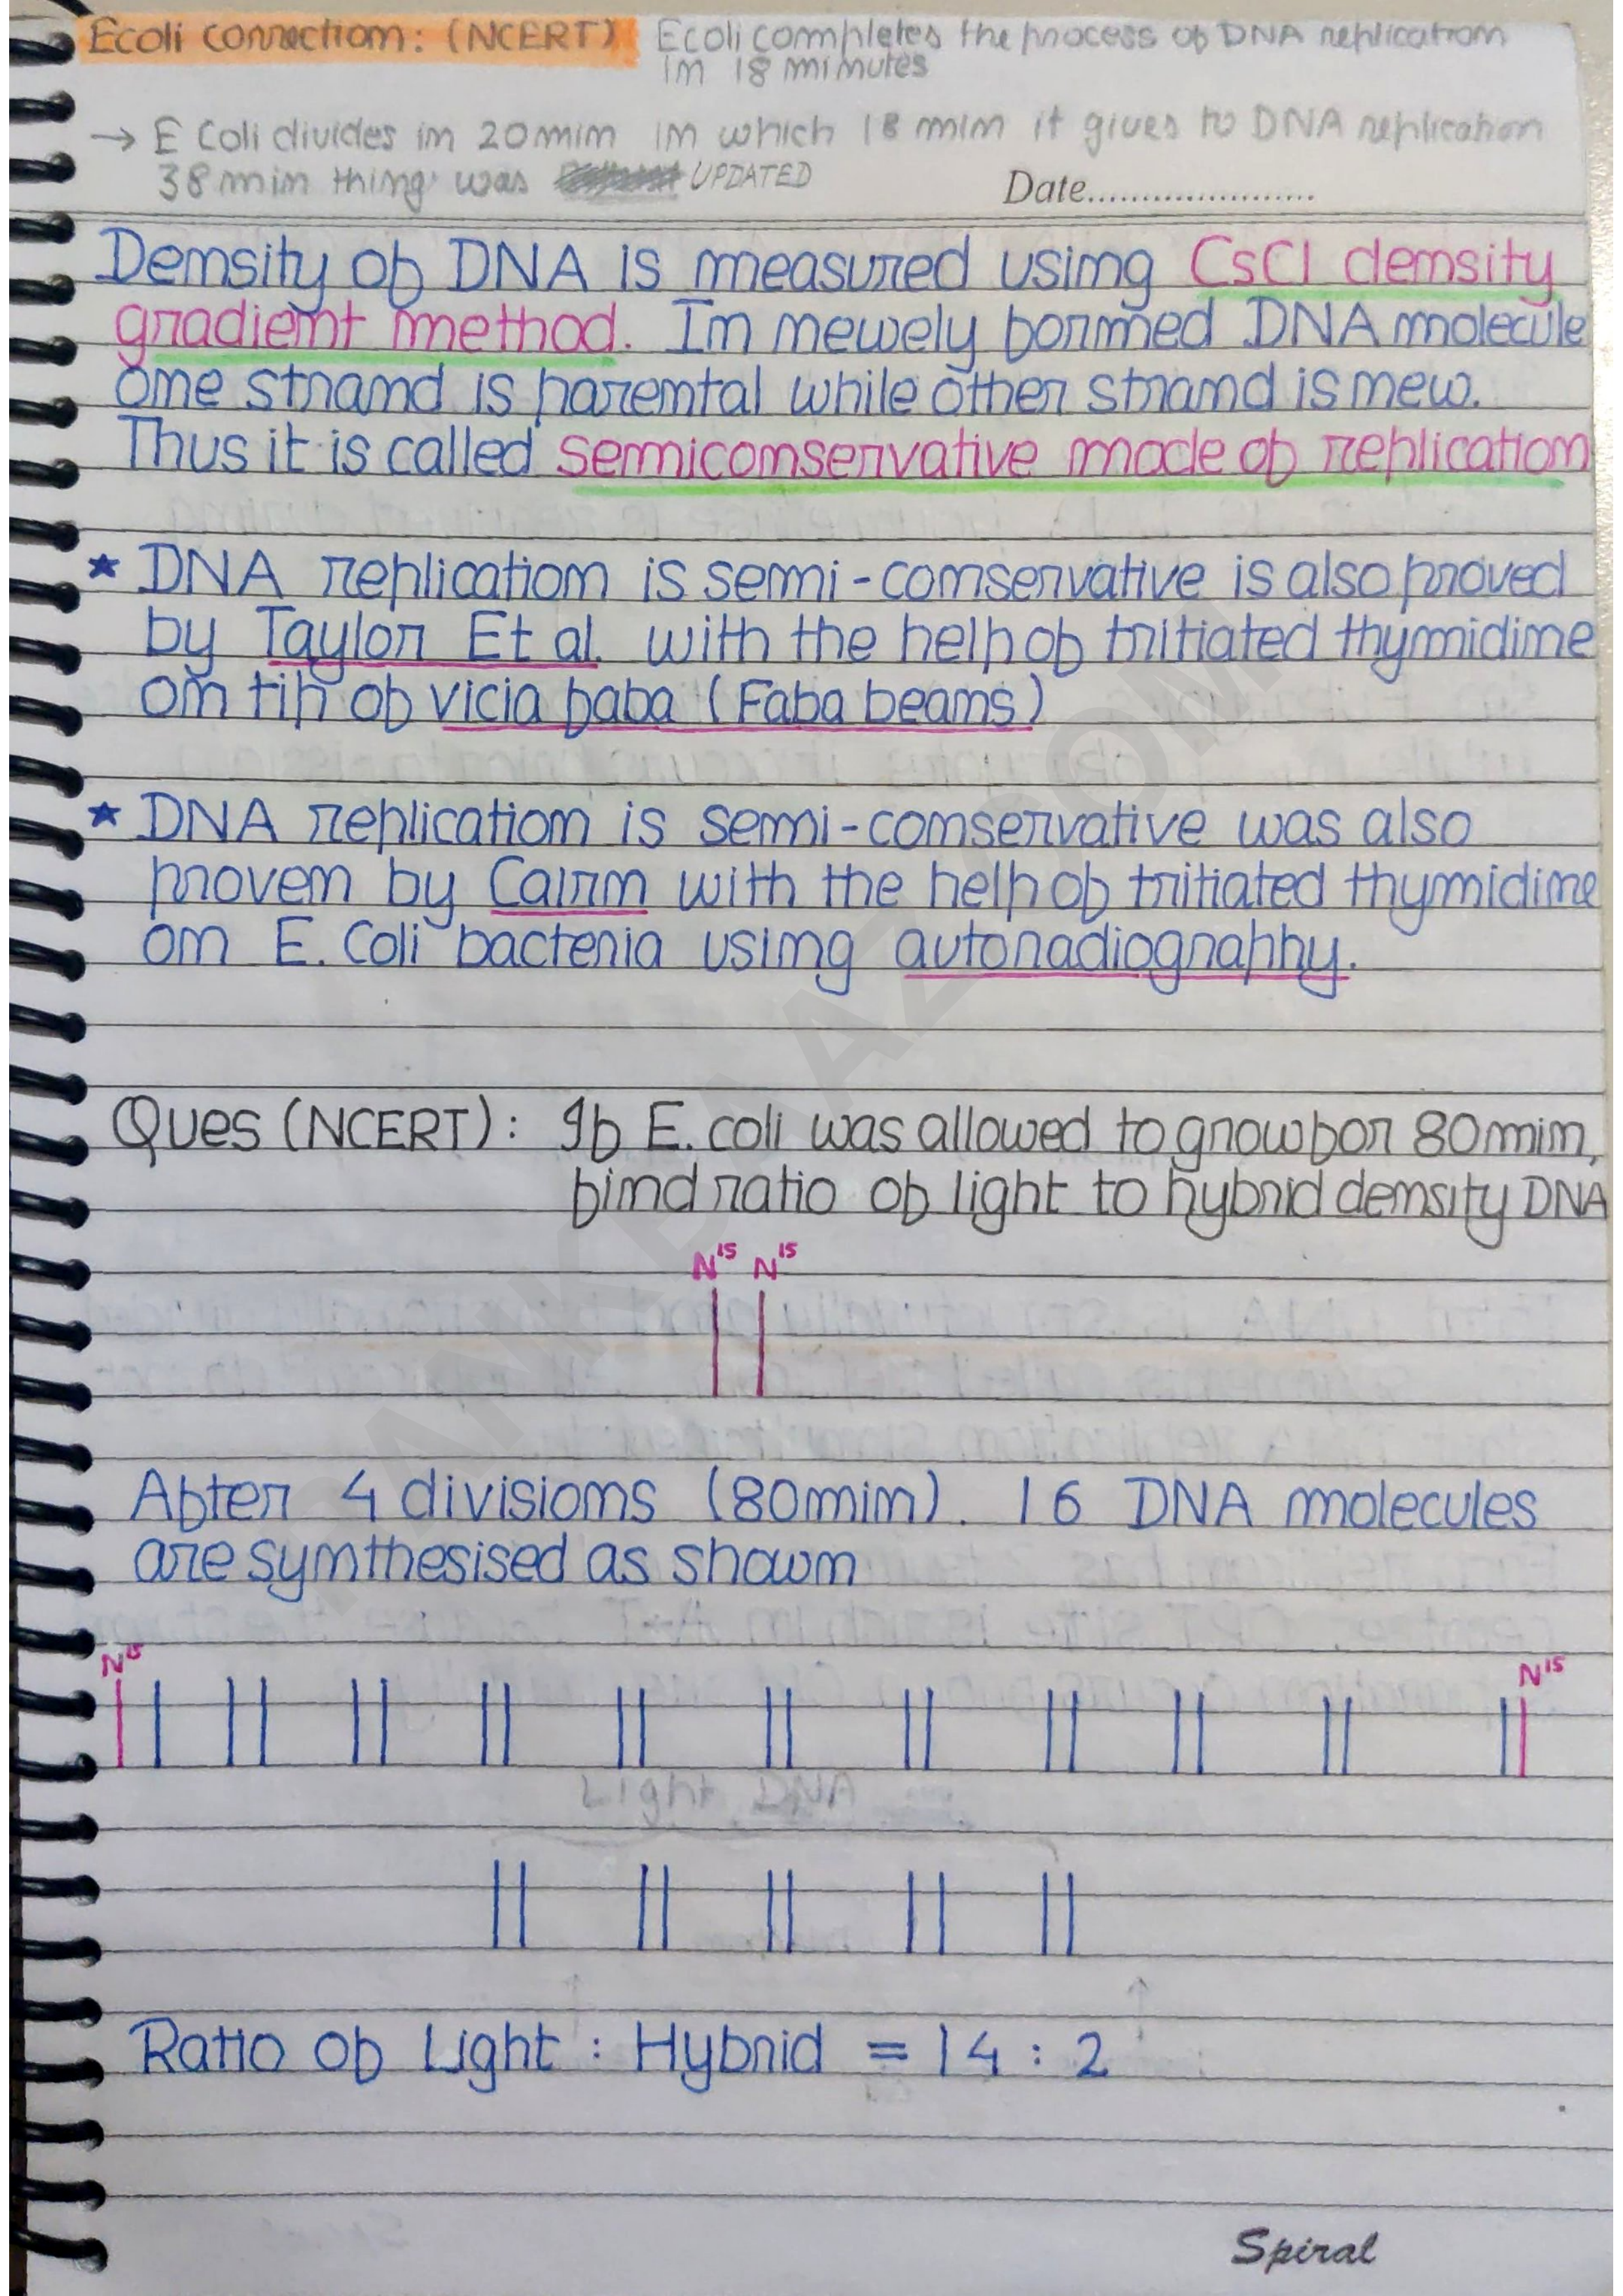 Ecoli correction: (NCERT) Ecoli completes the process of DNA replication
in 18 minutes
→ E Coli divides in 20min in which 18 min it gives to DNA replication
38min thing was UPDATED
Date......................
Density of DNA is measured using CsCl density
gradient method. In newely formed DNA molecule
one strand is parental while other strand is new.
Thus it is called semiconservative mode of replication
★ DNA replication is semi-conservative is also proved
by Taylor Et al. with the help of tritiated thymidine
on tip of vicia faba (Faba beans)
★ DNA replication is semi-conservative was also
proven by Cairn with the help of tritiated thymidine
on E. Coli bacteria using autoradiography.
Ques (NCERT): If E. coli was allowed to grow for 80min,
find ratio of light to hybrid density DNA
N¹⁵ N¹⁵
After 4 divisions (80min). 16 DNA molecules
are synthesised as shown
N¹⁵ N¹⁵
Light DNA
Ratio of Light : Hybrid = 14 : 2
Spiral